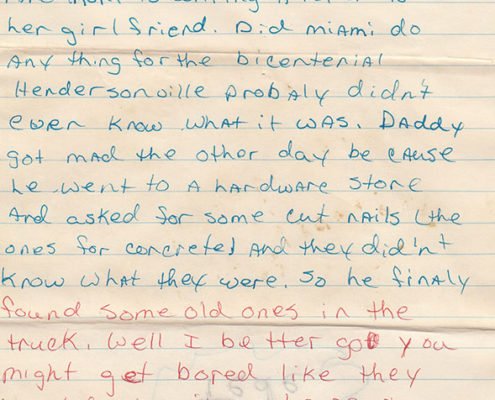 her girlfriend. Did miAmi do
Any thing for the bicentenial
Hendersonville probAly didn't
even know what it was. DAddy
got mad the other day be cause
he went to A hardware store
And asked for some cut nails (the
ones for concrete) and they did'nt
know what they were. So he finaly
found some old ones in the
truck. Well I better go you
might get bored like they